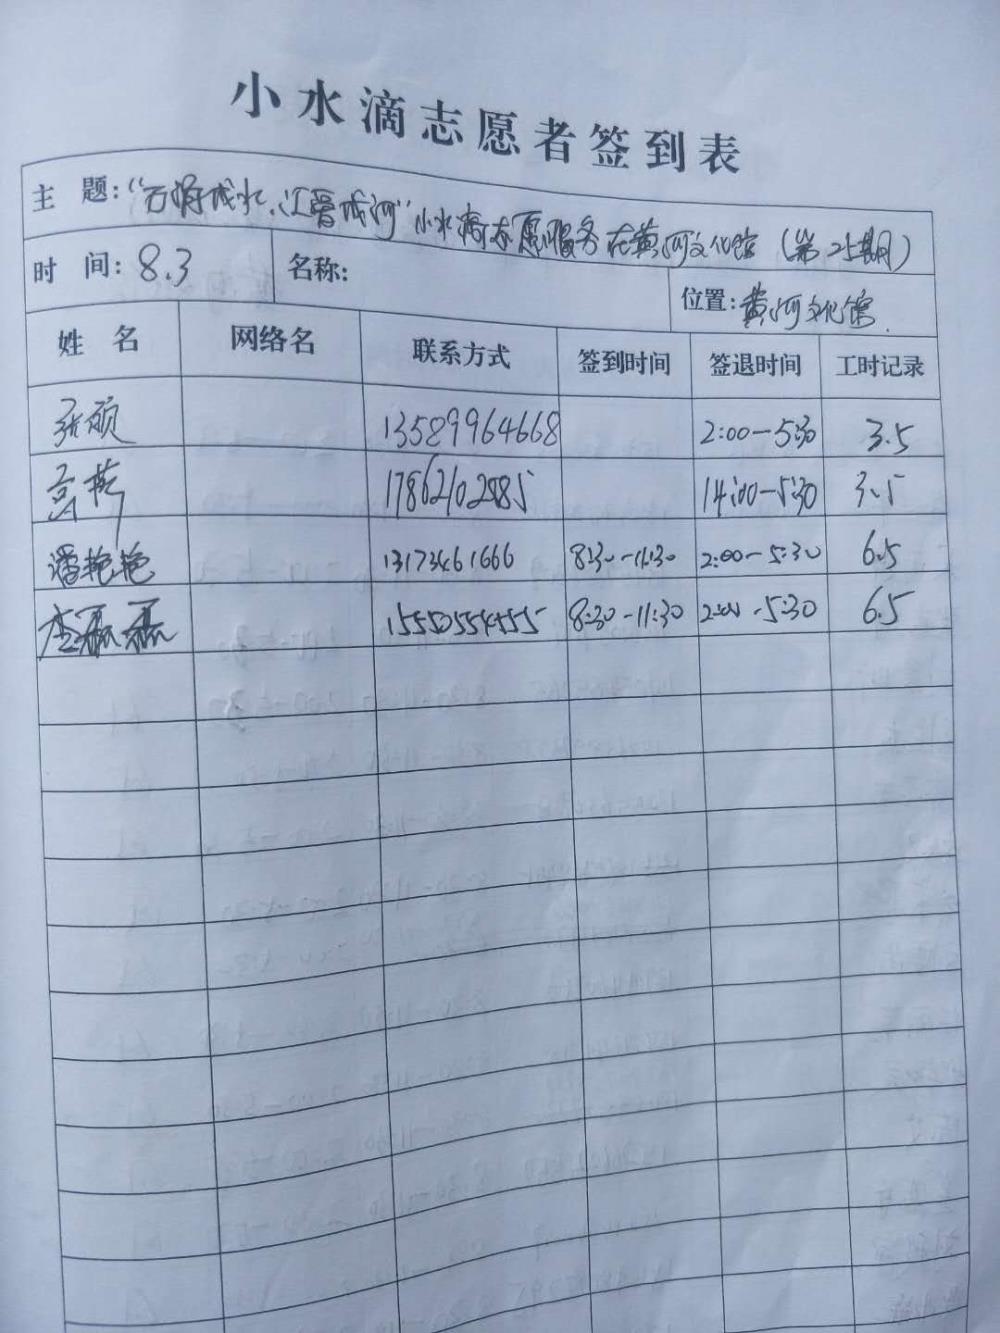 小水滴志愿者签到表
主 题: “万涓成水,汇聚成河”小水滴志愿服务在黄河文化馆 (第25期)
时 间: 8.3 名称: 位置: 黄河文化馆.
姓 名 网络名 联系方式 签到时间 签退时间 工时记录
张硕 13589964668 2:00-5:30 3.5
17862102985 14:00-5:30 3.5
潘艳艳 13173461666 8:30-11:30 2:00-5:30 6.5
李磊磊 15550554555 8:30-11:30 2:00-5:30 6.5